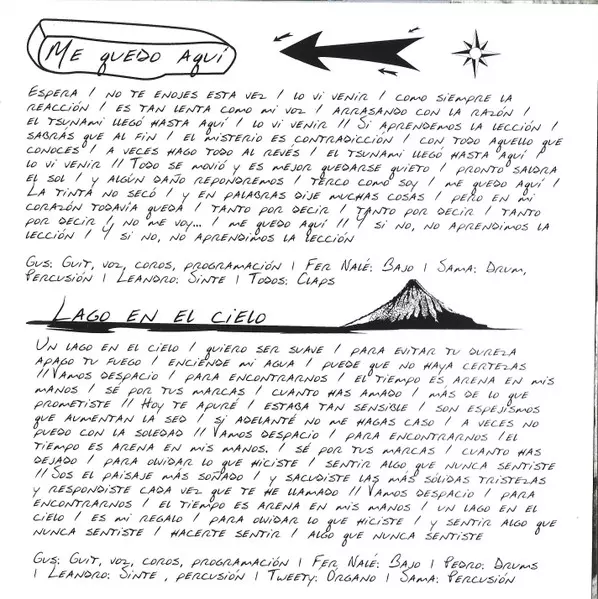 Me quedo aquí
Espera / no te enojes esta vez / lo vi venir / como siempre la
reacción / es tan lenta como mi voz / arrasando con la razón /
el tsunami llegó hasta aquí / lo vi venir // Si aprendemos la lección /
sabrás que al fin / el misterio es contradicción / con todo aquello que
conoces / a veces hago todo al revés / el tsunami llegó hasta aquí /
lo vi venir // Todo se movió y es mejor quedarse quieto / pronto saldra
el sol / y algún daño repondremos / terco como soy / me quedo aquí /
La tinta no secó / y en palabras dije muchas cosas / pero en mi
corazón todavía queda / tanto por decir / tanto por decir / tanto
por decir / y no me voy... / me quedo aquí // Y si no, no aprendimos la
lección / Y si no, no aprendimos la lección
Gus: Guit, voz, coros, programación | Fer Nalé: Bajo | Sama: Drum,
Percusión | Leandro: Sinte | Todos: Claps
Lago en el cielo
Un lago en el cielo / quiero ser suave / para evitar tu dureza
apago tu fuego / enciende mi agua / puede que no haya certezas
// Vamos despacio / para encontrarnos / el tiempo es arena en mis
manos / sé por tus marcas / cuanto has amado / más de lo que
prometiste // Hoy te apuré / estaba tan sensible / son espejismos
que aumentan la sed / si adelanté no me hagas caso / a veces no
puedo con la soledad // Vamos despacio / para encontrarnos /el
tiempo es arena en mis manos. / sé por tus marcas / cuanto has
dejado / para olvidar lo que hiciste / sentir algo que nunca sentiste
// Sos el paisaje más soñado / y sacudiste las más sólidas tristezas
y respondiste cada vez que te he llamado // Vamos despacio / para
encontrarnos / el tiempo es arena en mis manos / un lago en el
cielo / es mi regalo / para olvidar lo que hiciste / y sentir algo que
nunca sentiste / hacerte sentir / algo que nunca sentiste
Gus: Guit, voz, coros, programación | Fer Nalé: Bajo | Pedro: Drums
| Leandro: Sinte , percusión | Tweety: Organo | Sama: Percusión